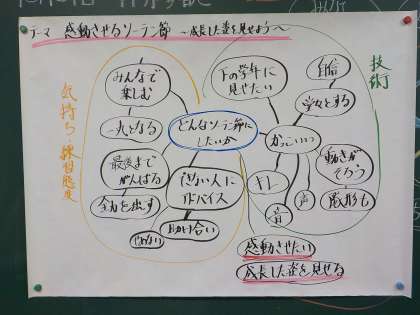 テーマ 感動させるソーラン節 〜成長した姿を見せよう〜
気持ち・練習態度
みんなで
楽しむ
一丸となる
最後まで
がんばる
全力を出す
どんなソーラン節に
したいか
できない人に
アドバイス
助け合い
下の学年に
見せたい
かっこいい
自信
技術
動きが
そろう
隊形も
声
音
キレ
感動させたい
成長した姿を見せる